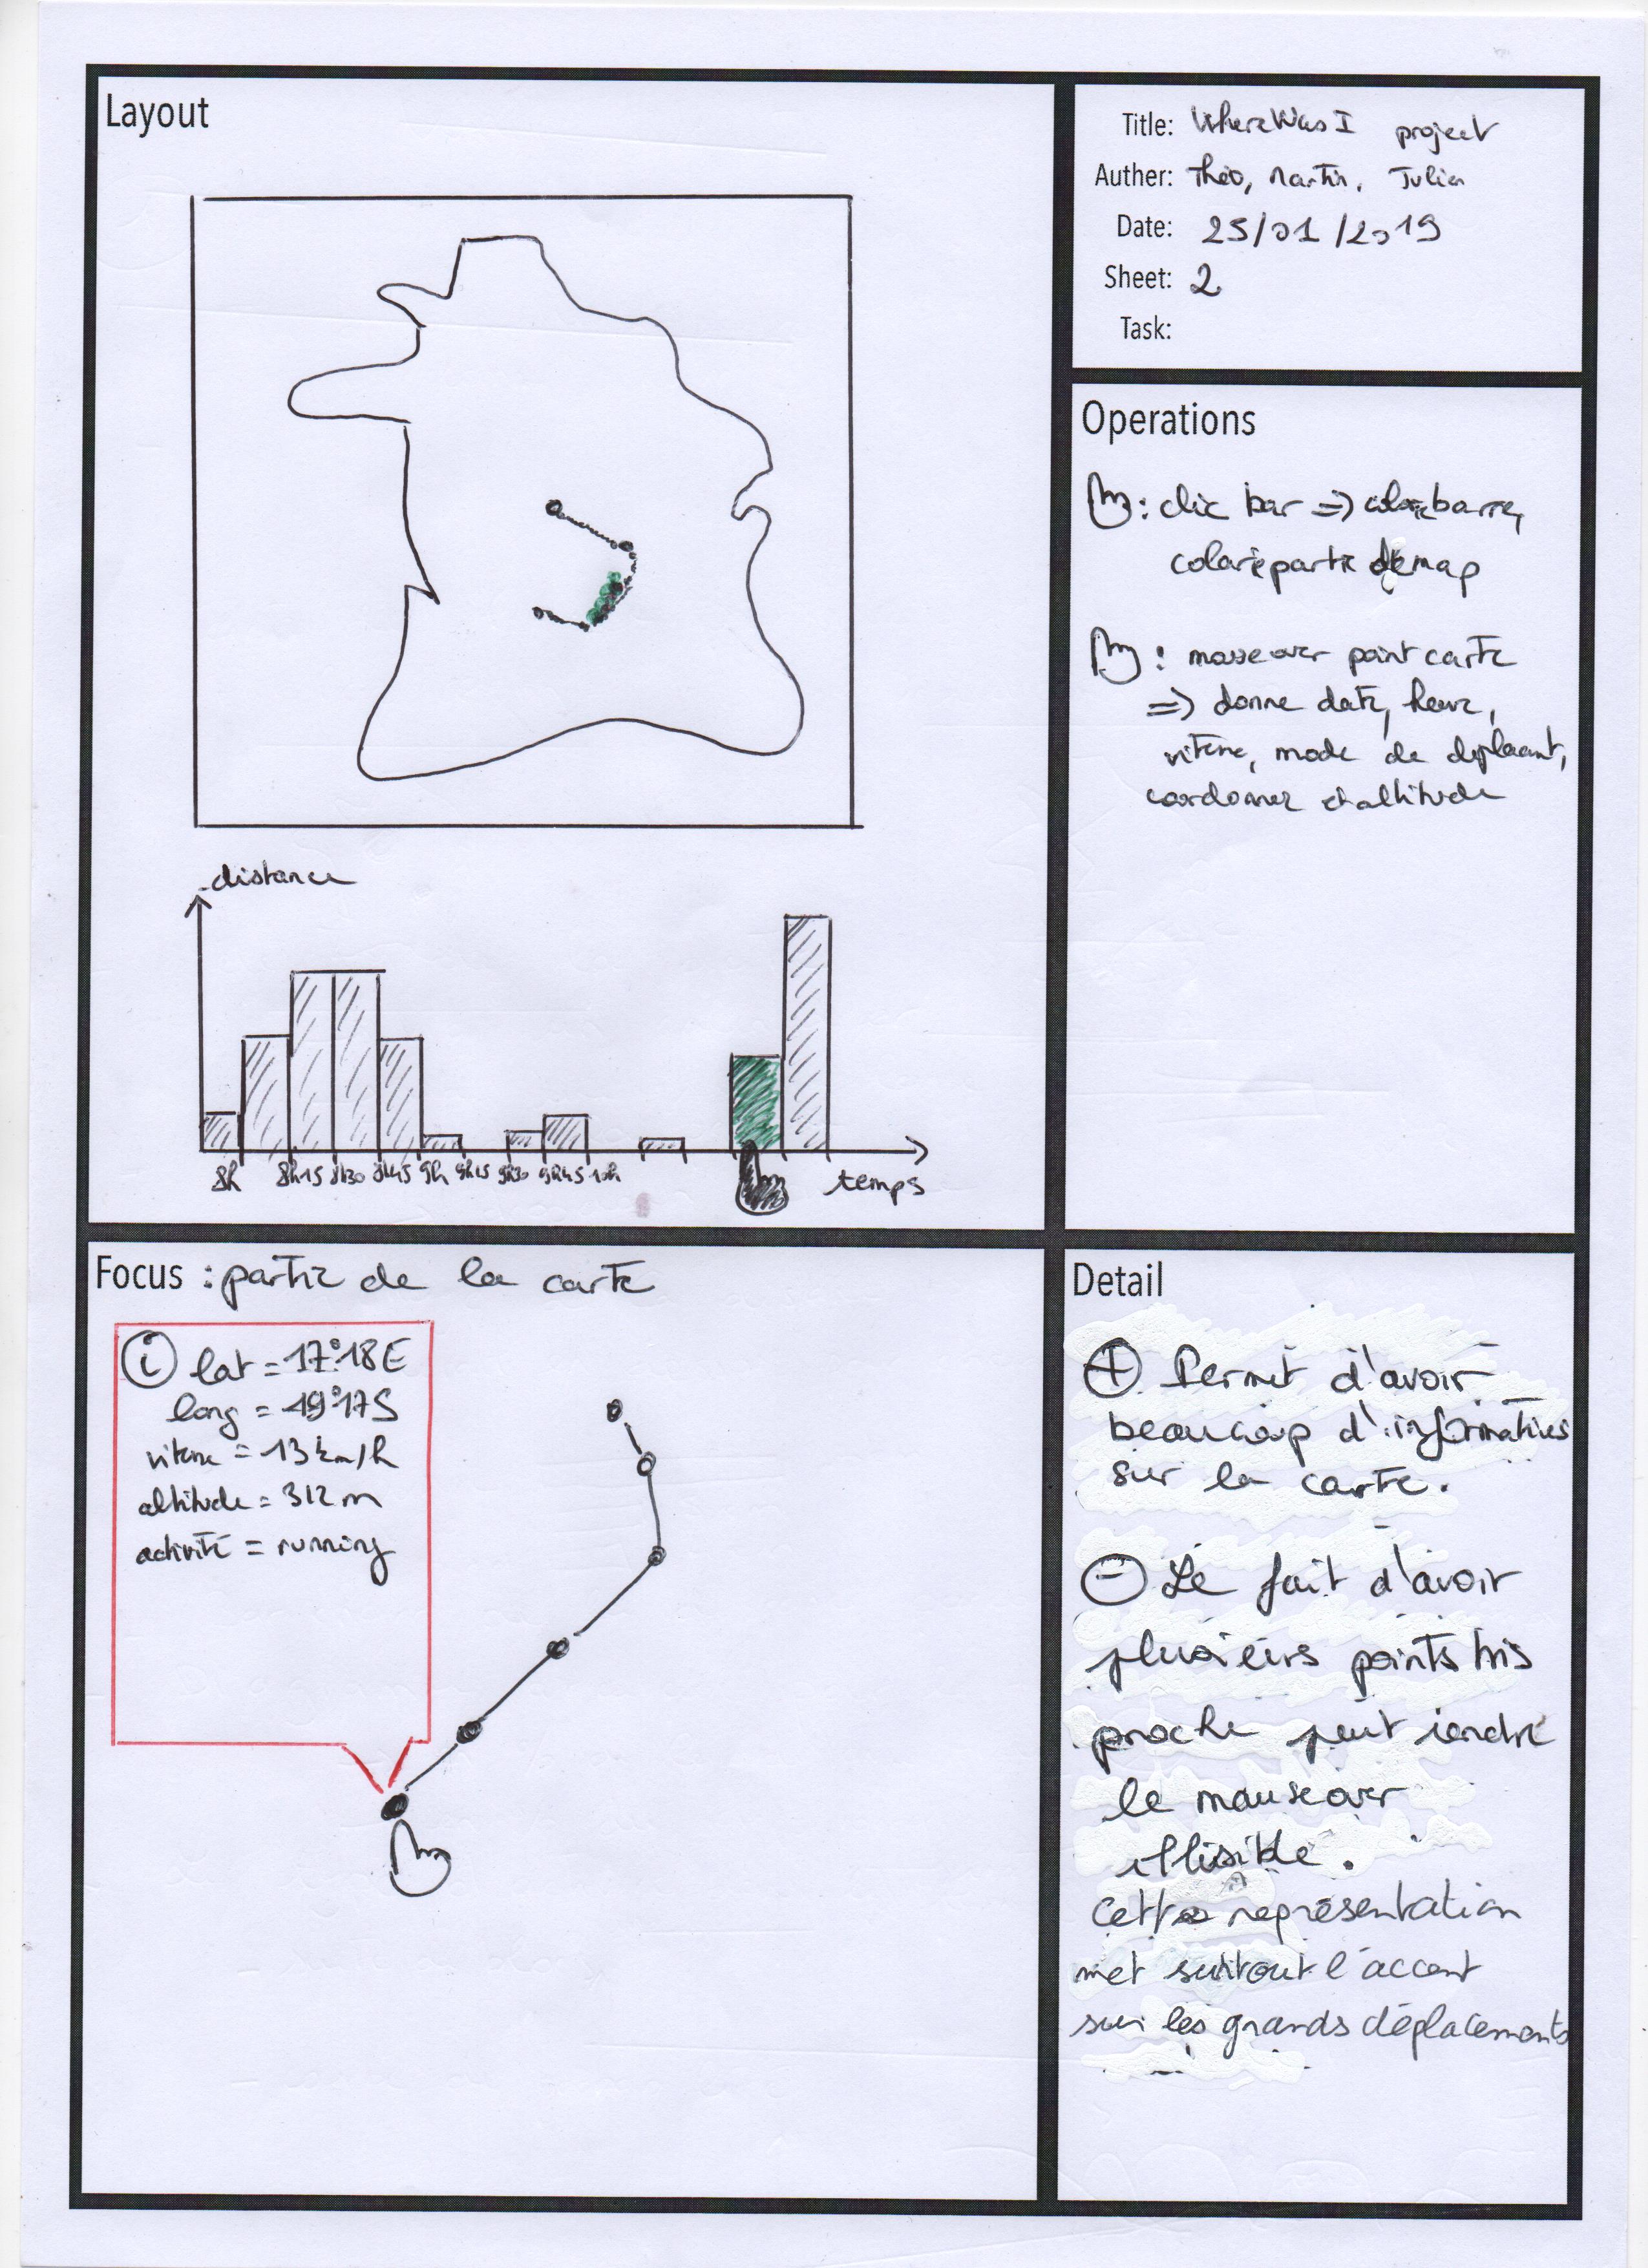 Layout
distance
8h 8h15 8h30 8h45 9h 9h15 9h30 9h45 10h
temps
Title: WhereWasI project
Auther: Théo, Martin, Julien
Date: 25/01/2019
Sheet: 2
Task:
Operations
: clic bar => colorie barre,
colorie partie de map
: mouseover point carte
=> donne date, heure,
vitesse, mode de deplacant,
coordonnes et altitude
Focus : partie de la carte
i lat = 17°18E
long = 49°17S
vitesse = 13 km/h
altitude = 312 m
activité = running
Detail
+ Permet d'avoir
beaucoup d'informations
sur la carte.
- Le fait d'avoir
plusieurs points très
proche peut rendre
le mouseover
illisible.
Cette représentation
met surtout l'accent
sur les grands déplacements